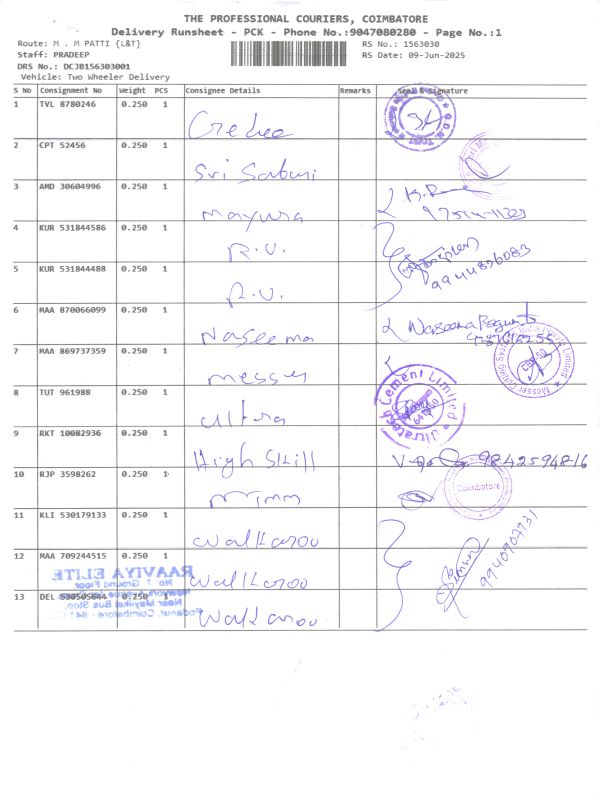 THE PROFESSIONAL COURIERS, COIMBATORE
Delivery Runsheet - PCK - Phone No.:9047080280 - Page No.:1
Route: M . M PATTI {L&T}
RS No.: 1563030
Staff: PRADEEP
RS Date: 09-Jun-2025
DRS No.: DCJB156303001
Vehicle: Two Wheeler Delivery
S No Consignment No Weight PCS Consignee Details Remarks Seal & Signature
1 TVL 8780246 0.250 1
2 CPT 52456 0.250 1 Sri Saburi
3 AMD 30604996 0.250 1 Mayura
4 KUR 531844586 0.250 1 R.V.
9944836083
5 KUR 531844488 0.250 1 R.V.
6 MAA 870066099 0.250 1 Naseema Naseema Begum
7 MAA 869737359 0.250 1 Messer
8 TUT 961988 0.250 1 Ultra Ultratech Cement Limited
9 RKT 10082936 0.250 1 High Skill 9842594816
10 RJP 3598262 0.250 1 Coimbatore
11 KLI 530179133 0.250 1 Walkaroo
12 MAA 709244515 0.250 1 Walkaroo
RAAVIYA ELITE
No 7, Ground Floor
Near Mayilkal Bus Stop,
13 DEL 530505644 0.250 1 Walkaroo
Podanur, Coimbatore - 641